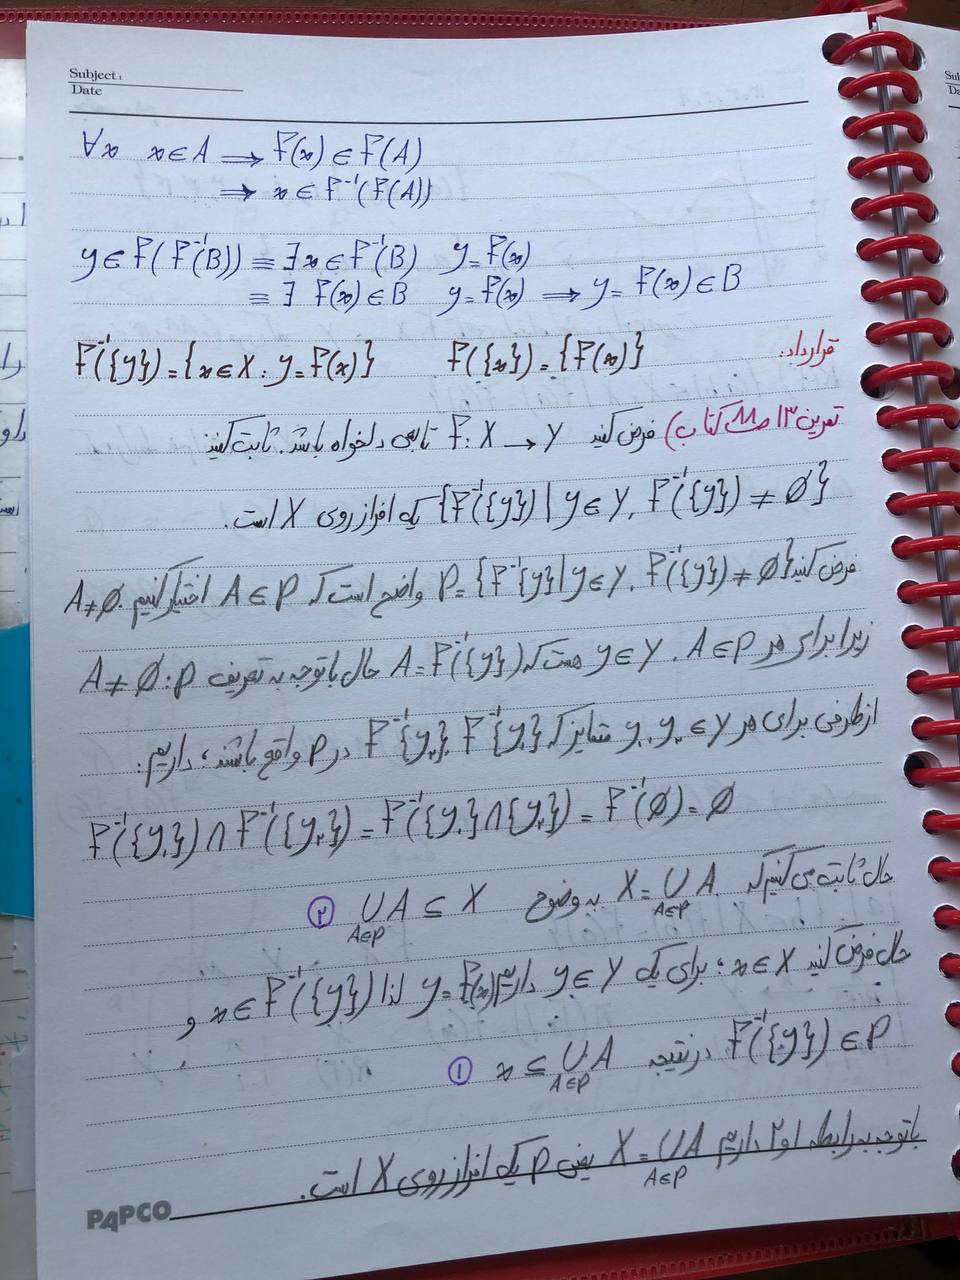 Subject:
Date
∀x x∈A ⟹ F(x)∈F(A)
⟹ x∈F⁻¹(F(A))
y∈F(F⁻¹(B)) ≡ ∃x∈F⁻¹(B) y=F(x)
≡ ∃ F(x)∈B y=F(x) ⟹ y=F(x)∈B
قرارداد: F({x})={F(x)} F⁻¹({y})={x∈X : y=F(x)}
تمرین ۱۳ ص کتاب) فرض کنید F: X → Y تابعی دلخواه باشد. ثابت کنید
{F⁻¹({y}) | y∈Y, F⁻¹({y}) ≠ ∅} یک افراز روی X است.
فرض کنید P={F⁻¹{y} | y∈Y, F⁻¹({y}) ≠ ∅} واضح است که A∈P اختیار کنیم A≠∅.
زیرا برای هر A∈P، y∈Y هست که A=F⁻¹({y}) حال با توجه به تعریف P: A≠∅
از طرفی برای هر y₁, y₂∈Y متمایز که F⁻¹{y₁}, F⁻¹{y₂} در P واقع باشند، داریم:
F⁻¹({y₁})∩F⁻¹({y₂}) = F⁻¹({y₁}∩{y₂}) = F⁻¹(∅) = ∅
حال ثابت می کنیم که X=∪A A∈P به وضوح ∪A ⊆ X A∈P ②
حال فرض کنید x∈X، برای یک y∈Y داریم y=F(x) لذا x∈F⁻¹({y}) و
F⁻¹({y})∈P در نتیجه x ⊆ ∪A A∈P ①
با توجه به رابطه ۱ و ۲ داریم X=∪A A∈P یعنی P یک افراز روی X است.
PAPCO